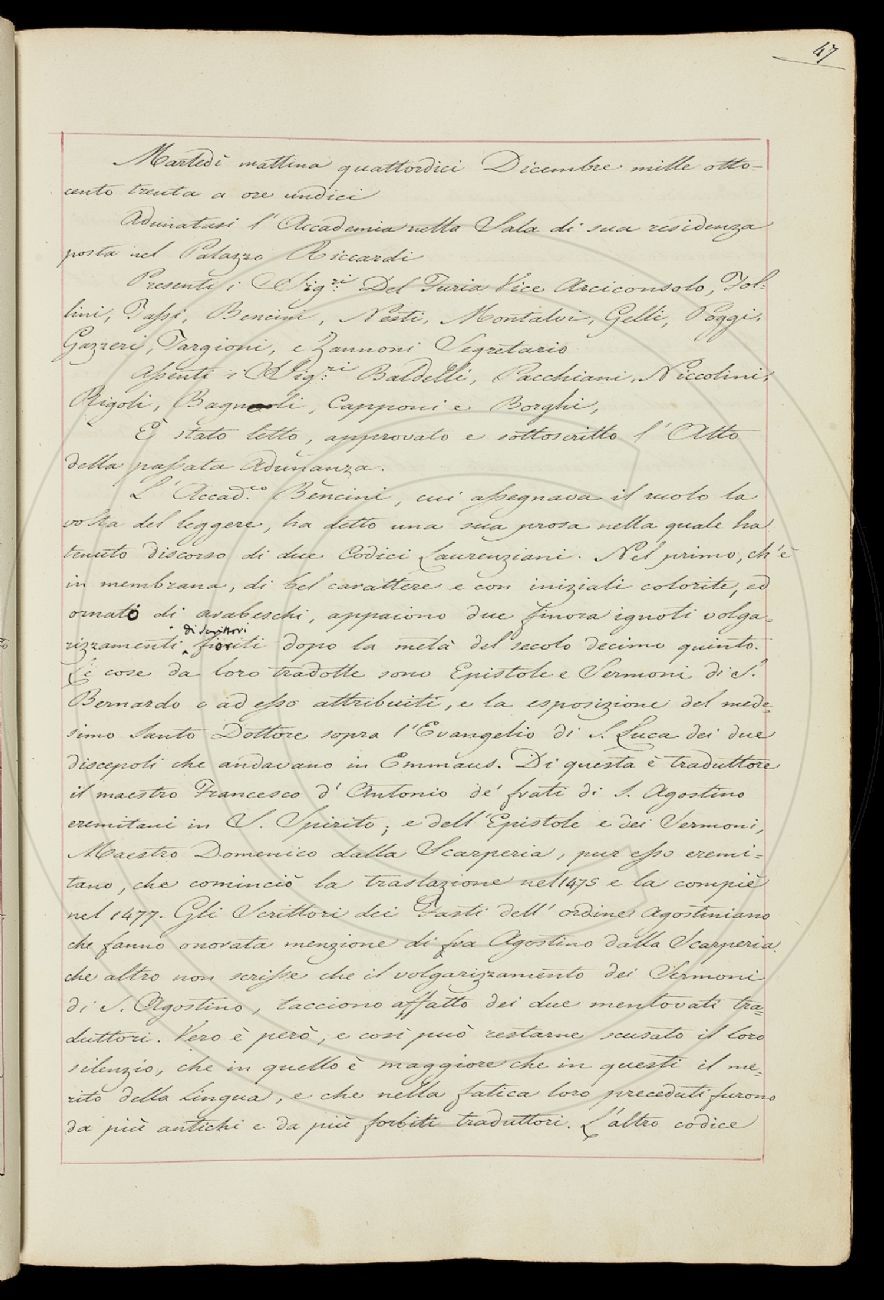 47
Martedì mattina quattordici Dicembre mille otto-
cento trenta a ore undici
Adunatasi l'Accademia nella Sala di sua residenza
posta nel Palazzo Riccardi
Presenti i Sig.ri Del Furia Vice Arciconsolo, Fol-
lini, Tassi, Bencini, Nesti, Montalvi, Gelli, Poggi,
Gazzeri, Targioni, e Zannoni Segretario
Assenti i Sig.ri Baldelli, Pacchiani, Niccolini,
Rigoli, Bagnoli, Capponi e Borghi,
È stato letto, approvato e sottoscritto l'Atto
della passata Adunanza.
L'Accad.co Bencini, cui assegnava il ruolo la
volta del leggere, ha letto una sua prosa nella quale ha
tenuto discorso di due Codici Laurenziani. Nel primo, ch'è
in membrana, di bel carattere e con iniziali colorite, ed
ornato di arabeschi, appaiono due finora ignoti volga-
rizzamenti di Scrittori fioriti dopo la metà del secolo decimo quinto.
Le cose da loro tradotte sono Epistole e Sermoni di S.
Bernardo o ad esso attribuiti, e la esposizione del mede-
simo Santo Dottore sopra l'Evangelio di S. Luca dei due
discepoli che andavano in Emmaus. Di questa è traduttore
il maestro Francesco d'Antonio de' frati di S. Agostino
eremitani in S. Spirito; e dell'Epistole e dei Sermoni,
Maestro Domenico dalla Scarperia, pur esso eremi-
tano, che cominciò la traslazione nel 1475 e la compiè
nel 1477. Gli Scrittori dei Fasti dell'ordine Agostiniano
che fanno onorata menzione di fra Agostino dalla Scarperia
che altro non scrisse che il volgarizzamento dei Sermoni
di S. Agostino, tacciono affatto dei due mentovati tra-
duttori. Vero è però, e così può restarne scusato il loro
silenzio, che in quello è maggiore che in questi il me-
rito della Lingua, e che nella fatica loro preceduti furono
da più antichi e da più forbiti traduttori. L'altro codice